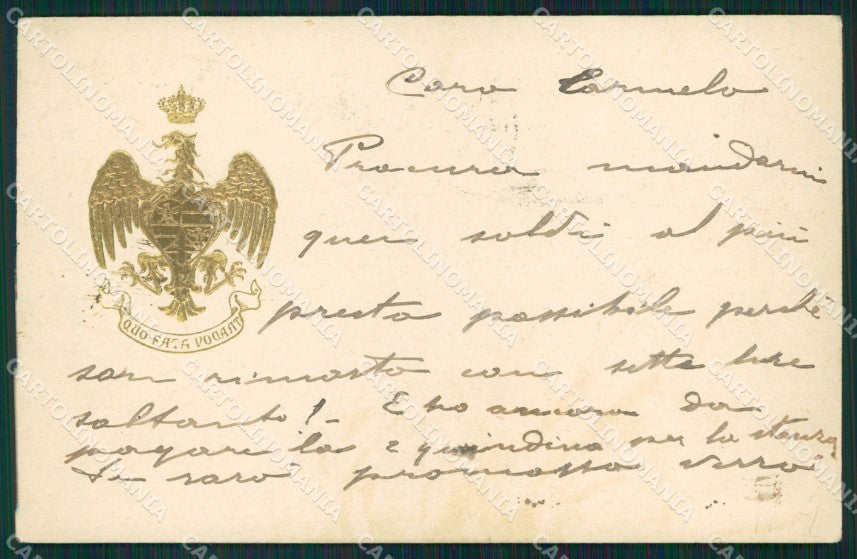 Caro Carmelo
Procura mandarmi
quei soldi al più
presto possibile perchè
son rimasto con sette lire
soltanto! - E ho ancora da
pagare la 2 quindina per la stanza
Se sarò promosso verrò
QUO FATA VOCANT
CARTOLINOMANIA